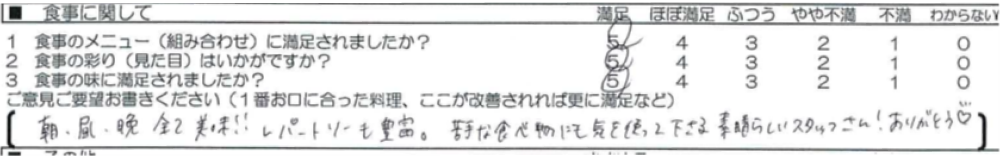 ■ 食事に関して 満足 ほぼ満足 ふつう やや不満 不満 わからない
1 食事のメニュー（組み合わせ）に満足されましたか？ 5 4 3 2 1 0
2 食事の彩り（見た目）はいかがですか？ 5 4 3 2 1 0
3 食事の味に満足されましたか？ 5 4 3 2 1 0
ご意見ご要望お書きください（１番お口に合った料理、ここが改善されれば更に満足など）
朝、昼、晩 全て美味!! レパートリーも豊富。苦手な食べ物にも気を使って下さる 素晴らしいスタッフさん！ありがとう♡